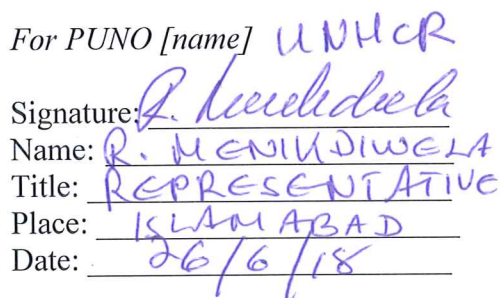 For PUNO [name] UNHCR
Signature: R. Menikdiwela
Name: R. MENIKDIWELA
Title: REPRESENTATIVE
Place: ISLAMABAD
Date: 26/6/18